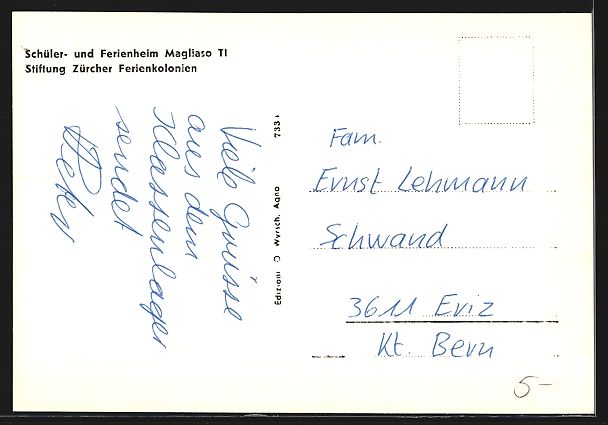 Schüler- und Ferienheim Magliaso TI
Stiftung Zürcher Ferienkolonien
Viele Grüsse
aus dem
Klassenlager
sendet
Peter
Edizioni O. Wyrsch, Agno 733
Fam.
Ernst Lehmann
Schwand
3611 Eriz
Kt. Bern
5-